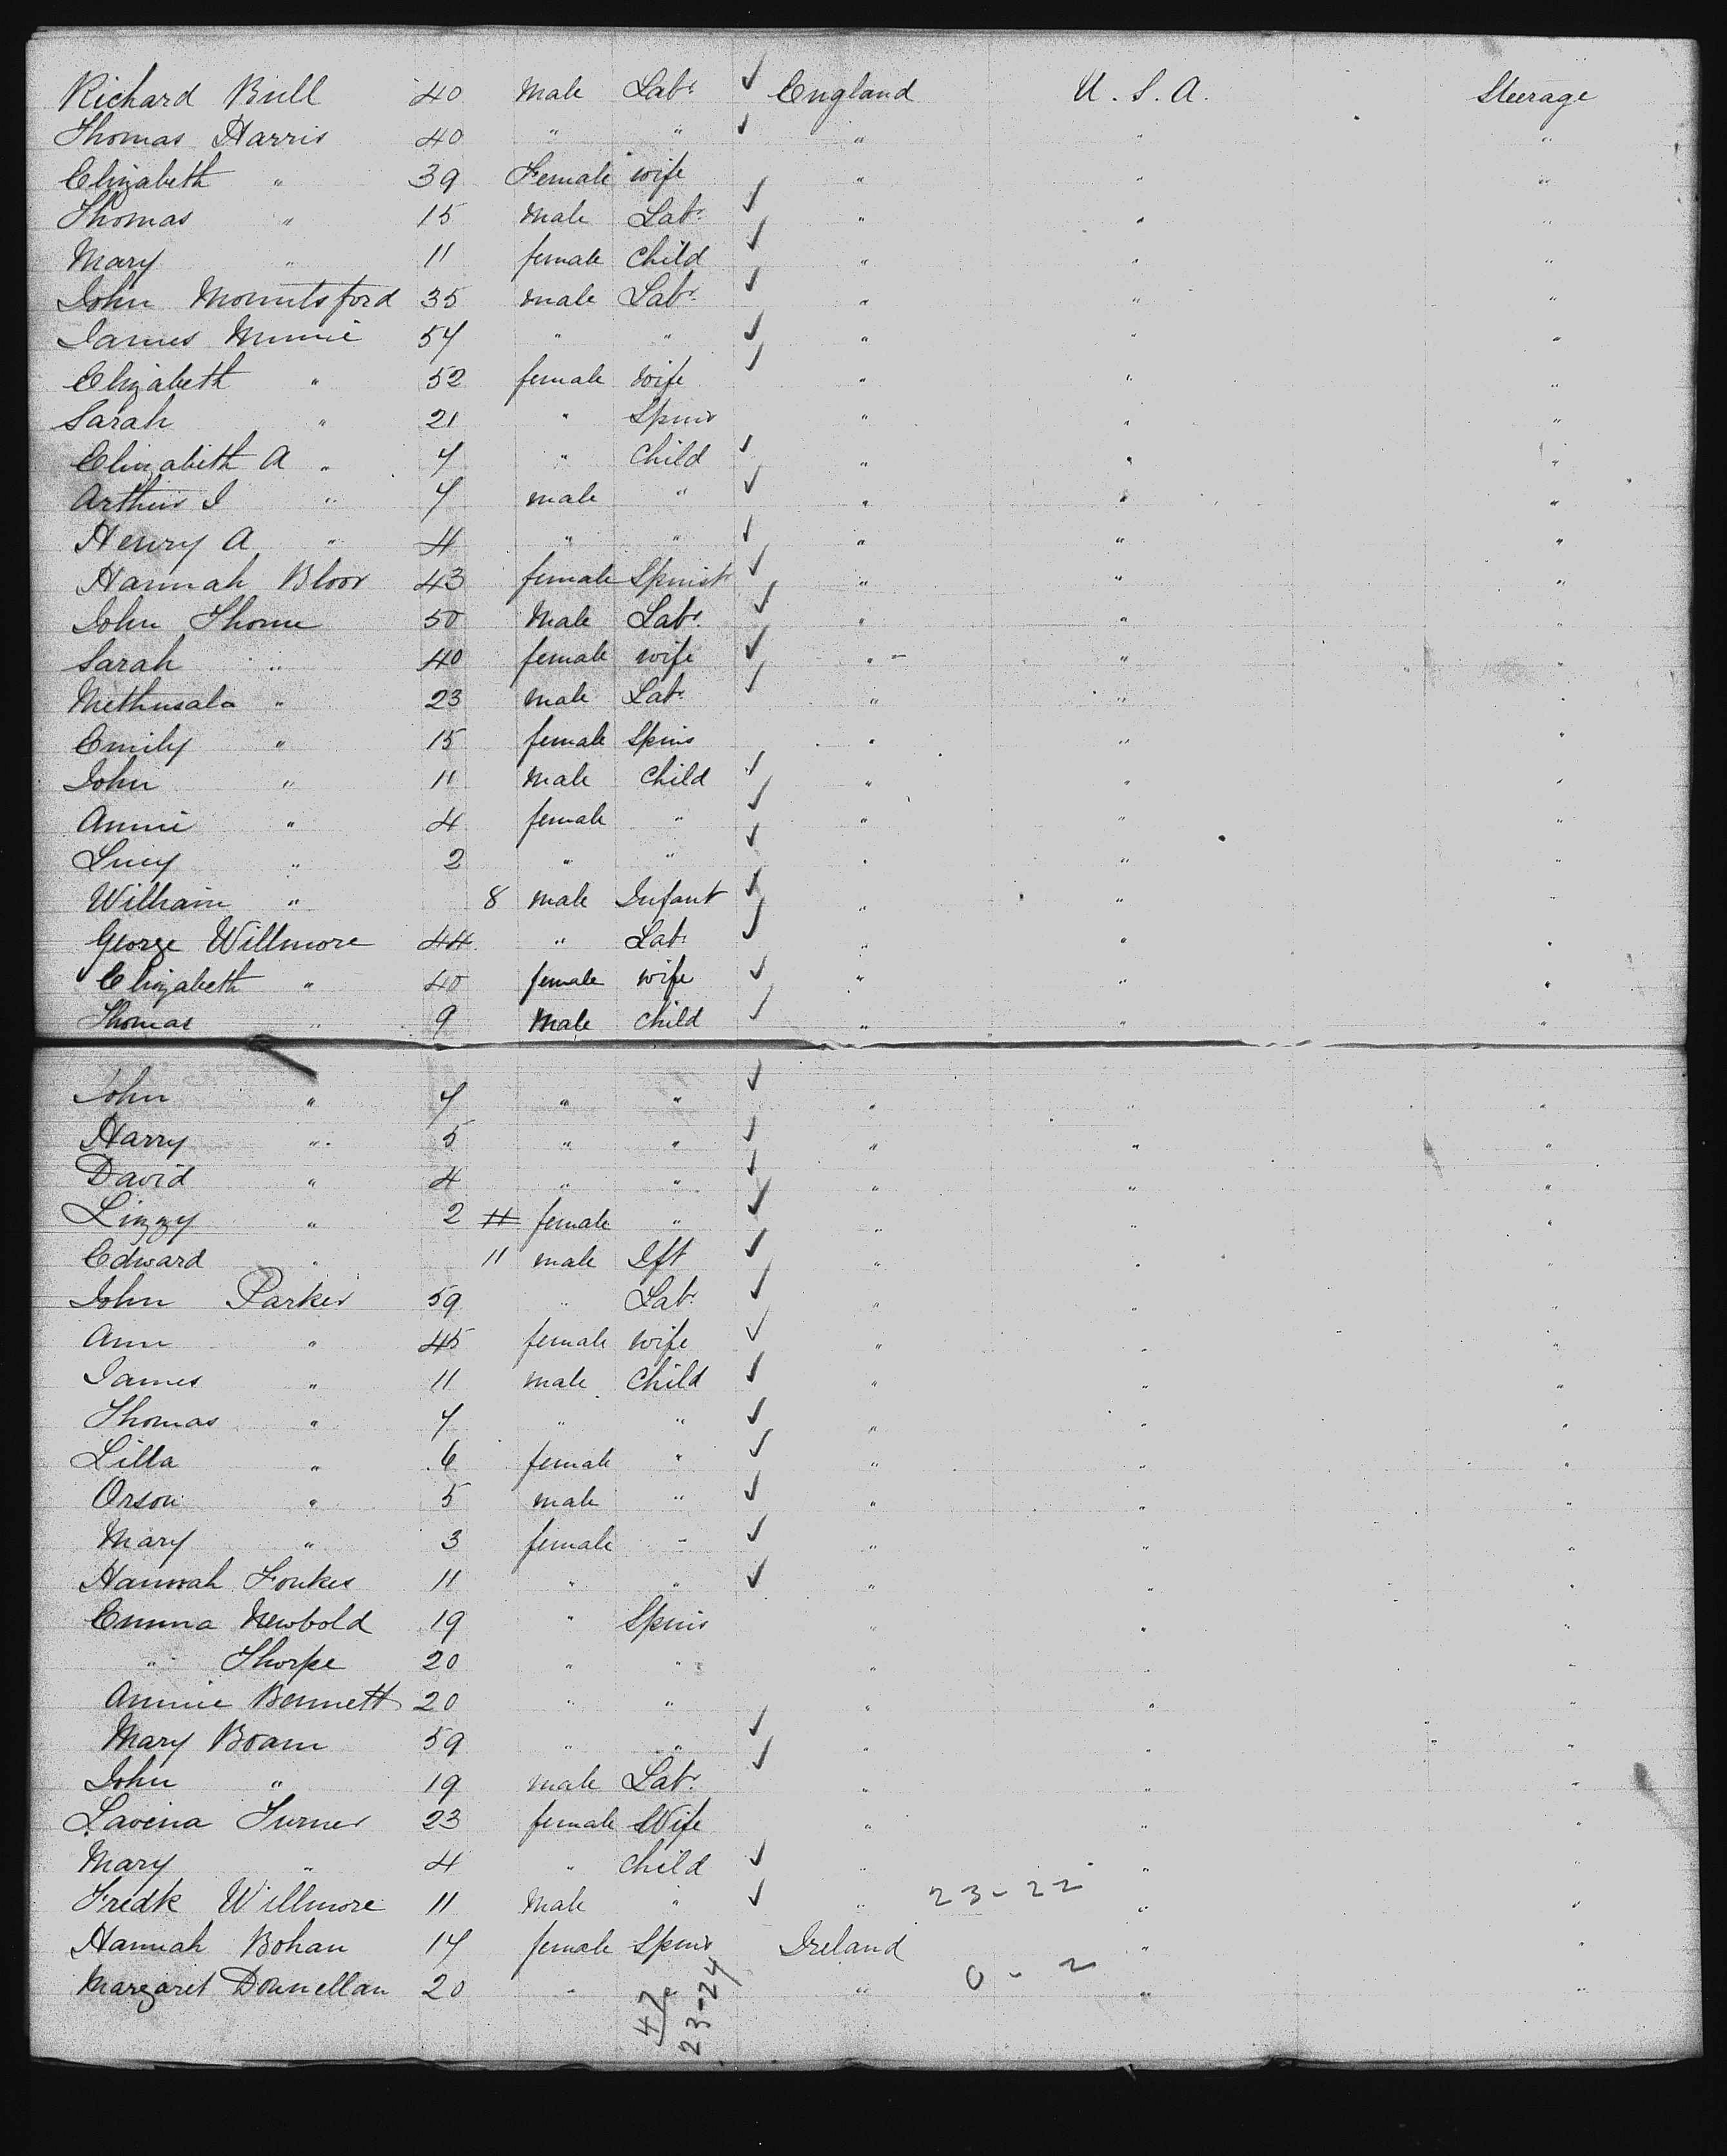 Richard Bull 40 Male Labr England U. S. A. Steerage
Thomas Harris 40 " " " " "
Elizabeth " 39 Female wife " " "
Thomas " 15 Male Labr " " "
Mary " 11 female Child " " "
John Mountsford 35 male Labr " " "
James 54 " " " " "
Elizabeth " 52 female wife " " "
Sarah " 21 " Spins " " "
Elizabeth A " 7 " Child " " "
Arthur J " 7 male " " " "
Henry A " 4 " " " " "
Hannah Bloor 43 female Spinstr " " "
John Thorne 50 Male Labr. " " "
Sarah " 40 female wife " " "
Methusala " 23 male Labr " " "
Emily " 15 female Spins " " "
John " 11 Male Child " " "
Annie " 4 female " " " "
Lucy " 2 " " " " "
William " 8 male Infant " " "
George Willmore 44 " Labr " " "
Elizabeth " 40 female wife " " "
Thomas " 9 Male Child " " "
John " 7 " " " " "
Harry " 5 " " " " "
David " 4 " " " " "
Lizzy " 2 female " " " "
Edward " 11 male Ift " " "
John Parker 59 " Labr " " "
Ann " 45 female wife " " "
James " 11 male Child " " "
Thomas " 7 " " " " "
Lilla " 6 female " " " "
Orson " 5 male " " " "
Mary " 3 female " " " "
Hannah Foukes 11 " " " " "
Emma Newbold 19 " Spins " " "
" Thorpe 20 " " " " "
Annie Bennett 20 " " " " "
Mary Boam 59 " " " " "
John " 19 male Labr. " " "
Lavina Turner 23 female Wife " " "
Mary " 4 " child " " "
Fredk Willmore 11 Male " " 23-22 " "
Hannah Bohan 17 female Spins Ireland " "
Margaret Donnellan 20 " " " 0 - 2 " "
47
23-24